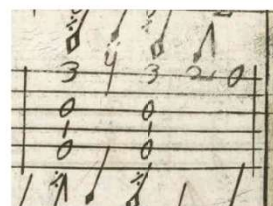 3 4 3 2 0
0 0
0 0